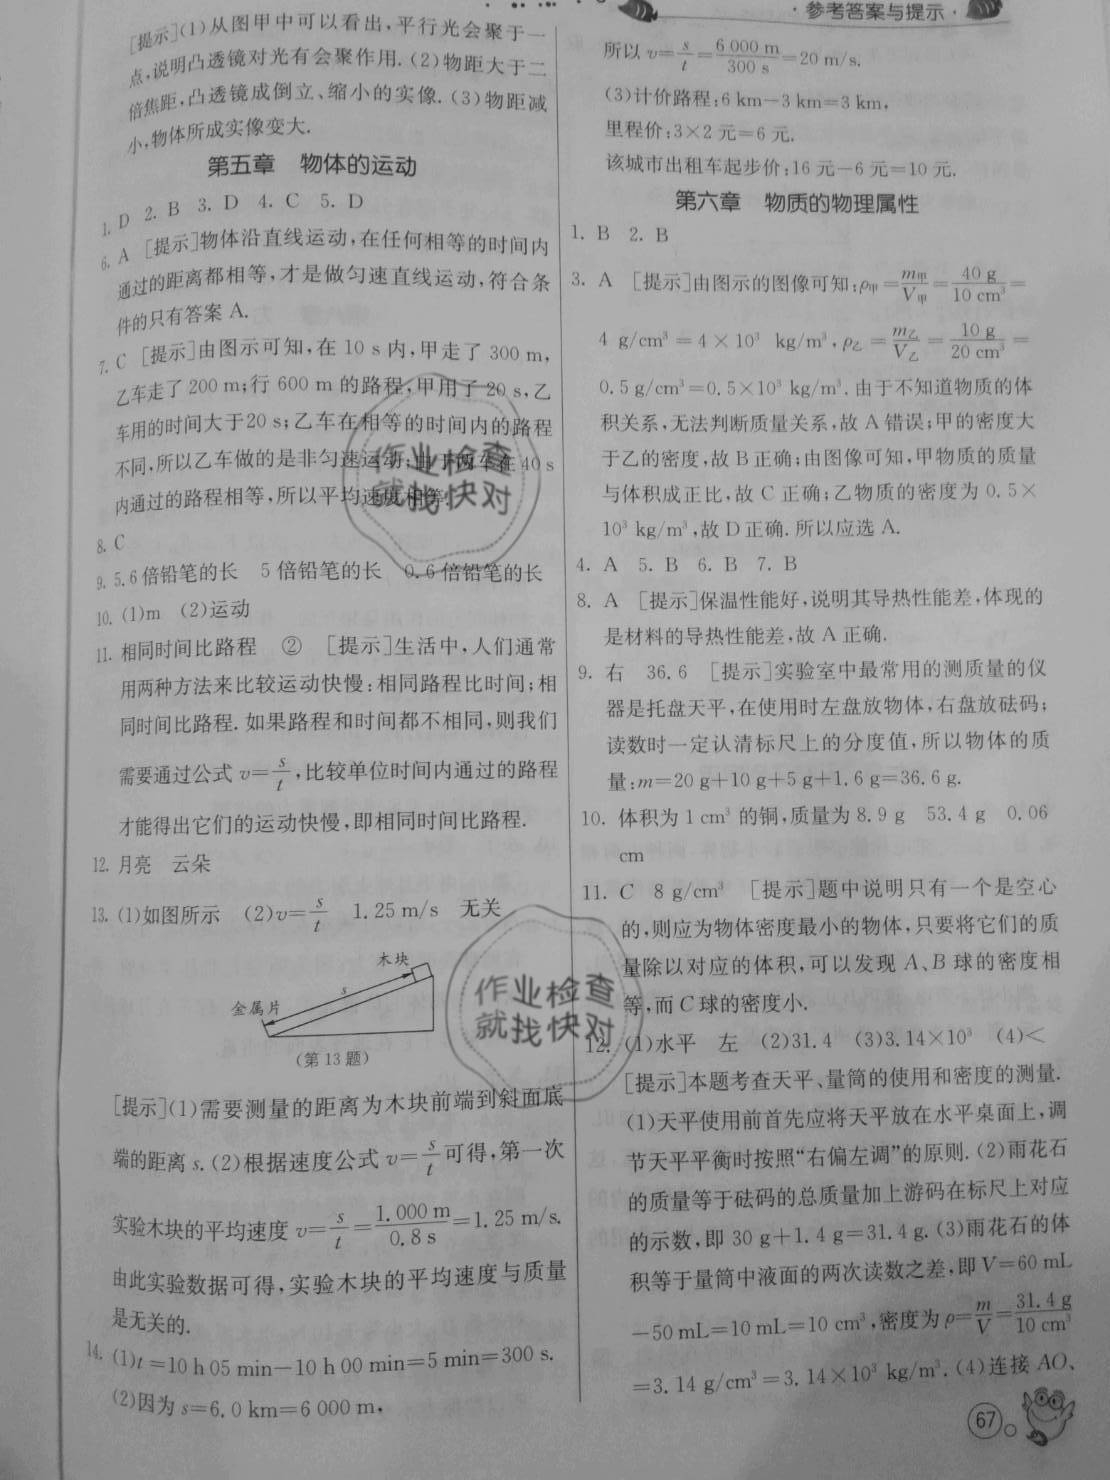 ·参考答案与提示·
[提示](1)从图甲中可以看出,平行光会聚于一
点,说明凸透镜对光有会聚作用.(2)物距大于二
倍焦距,凸透镜成倒立、缩小的实像.(3)物距减
小,物体所成实像变大.
第五章 物体的运动
1. D 2. B 3. D 4. C 5. D
6. A [提示]物体沿直线运动,在任何相等的时间内
通过的距离都相等,才是做匀速直线运动,符合条
件的只有答案 A.
7. C [提示]由图示可知,在 10 s 内,甲走了 300 m,
乙车走了 200 m;行 600 m 的路程,甲用了 20 s,乙
车用的时间大于20 s;乙车在相等的时间内的路程
不同,所以乙车做的是非匀速运动;由于两车在40 s
内通过的路程相等,所以平均速度相等.
8. C
9. 5.6倍铅笔的长 5 倍铅笔的长 0.6倍铅笔的长
10. (1)m (2)运动
11. 相同时间比路程 ② [提示]生活中,人们通常
用两种方法来比较运动快慢:相同路程比时间;相
同时间比路程.如果路程和时间都不相同,则我们
需要通过公式 v=s/t,比较单位时间内通过的路程
才能得出它们的运动快慢,即相同时间比路程.
12. 月亮 云朵
13. (1)如图所示 (2)v=s/t 1.25 m/s 无关
木块
s
金属片
(第 13 题)
[提示](1)需要测量的距离为木块前端到斜面底
端的距离 s.(2)根据速度公式 v=s/t可得,第一次
实验木块的平均速度 v=s/t=1.000 m/0.8 s=1.25 m/s.
由此实验数据可得,实验木块的平均速度与质量
是无关的.
14. (1)t=10 h 05 min−10 h 00 min=5 min=300 s.
(2)因为 s=6.0 km=6 000 m,
所以 v=s/t=6 000 m/300 s=20 m/s.
(3)计价路程:6 km−3 km=3 km,
里程价:3×2 元=6 元.
该城市出租车起步价:16 元−6 元=10 元.
第六章 物质的物理属性
1. B 2. B
3. A [提示]由图示的图像可知:ρ甲=m甲/V甲=40 g/10 cm³=
4 g/cm³=4×10³ kg/m³,ρ乙=m乙/V乙=10 g/20 cm³=
0.5 g/cm³=0.5×10³ kg/m³.由于不知道物质的体
积关系,无法判断质量关系,故 A 错误;甲的密度大
于乙的密度,故 B 正确;由图像可知,甲物质的质量
与体积成正比,故 C 正确;乙物质的密度为 0.5×
10³ kg/m³,故 D 正确.所以应选 A.
4. A 5. B 6. B 7. B
8. A [提示]保温性能好,说明其导热性能差,体现的
是材料的导热性能差,故 A 正确.
9. 右 36.6 [提示]实验室中最常用的测质量的仪
器是托盘天平,在使用时左盘放物体,右盘放砝码;
读数时一定认清标尺上的分度值,所以物体的质
量:m=20 g+10 g+5 g+1.6 g=36.6 g.
10. 体积为 1 cm³ 的铜,质量为 8.9 g 53.4 g 0.06
cm
11. C 8 g/cm³ [提示]题中说明只有一个是空心
的,则应为物体密度最小的物体,只要将它们的质
量除以对应的体积,可以发现 A、B 球的密度相
等,而 C 球的密度小.
12. (1)水平 左 (2)31.4 (3)3.14×10³ (4)<
[提示]本题考查天平、量筒的使用和密度的测量.
(1)天平使用前首先应将天平放在水平桌面上,调
节天平平衡时按照“右偏左调”的原则.(2)雨花石
的质量等于砝码的总质量加上游码在标尺上对应
的示数,即 30 g+1.4 g=31.4 g.(3)雨花石的体
积等于量筒中液面的两次读数之差,即 V=60 mL
−50 mL=10 mL=10 cm³,密度为 ρ=m/V=31.4 g/10 cm³
=3.14 g/cm³=3.14×10³ kg/m³.(4)连接 AO、
67
作业检查
就找快对
作业检查
就找快对